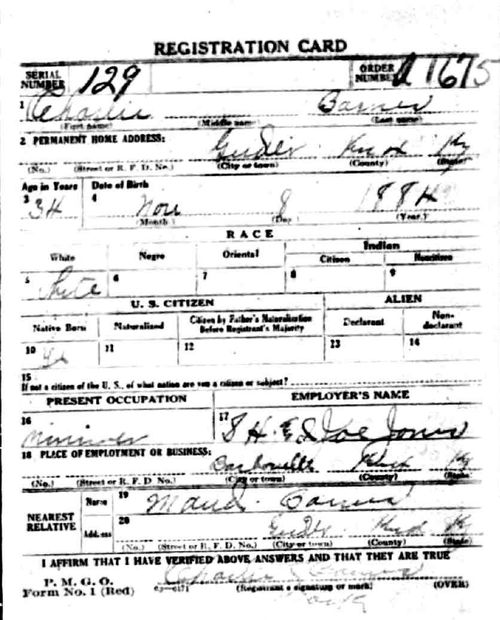 REGISTRATION CARD
SERIAL NUMBER 129 ORDER NUMBER A 1675
1 Charlie
(First name) (Middle name) (Last name)
2 PERMANENT HOME ADDRESS: Knox Ky
(No.) (Street or R. F. D. No.) (City or town) (County) (State)
Age in Years Date of Birth
3 34 4 Nov 8 1884
(Month) (Day) (Year)
RACE
White Negro Oriental Indian
Citizen Noncitizen
5 White 6 7 8 9
U. S. CITIZEN ALIEN
Native Born Naturalized Citizen by Father's Naturalization Before Registrant's Majority Declarant Non-declarant
10 11 12 13 14
15
If not a citizen of the U. S., of what nation are you a citizen or subject?
PRESENT OCCUPATION EMPLOYER'S NAME
16 17 Joe Jones
18 PLACE OF EMPLOYMENT OR BUSINESS:
Knox Ky
(No.) (Street or R. F. D. No.) (City or town) (County) (State)
NEAREST RELATIVE Name 19
Address 20 Knox Ky
(No.) (Street or R. F. D. No.) (City or town) (County) (State)
I AFFIRM THAT I HAVE VERIFIED ABOVE ANSWERS AND THAT THEY ARE TRUE
P. M. G. O.
Form No. 1 (Red) (Registrant's signature or mark) (OVER)